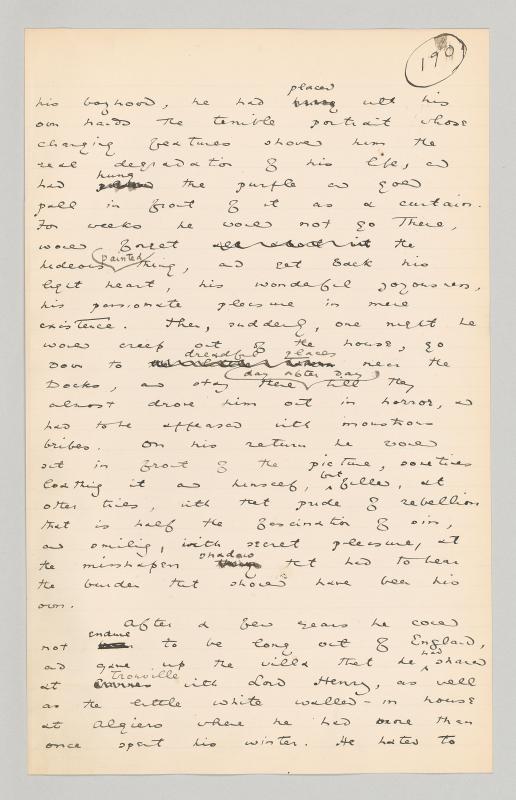 190
his boyhood, he had placed with his
own hands the terrible portrait whose
changing features showed him the
real degradation of his life, and
had hung the purple and gold
pall in front of it as a curtain.
For weeks he would not go there,
would forget the
hideous painted thing, and get back his
light heart, his wonderful joyousness,
his passionate pleasure in mere
existence. Then, suddenly, one night he
would creep out of the house, go
down to dreadful places near the
Docks, and stay there day after day till they
almost drove him out in horror, and
had to be appeased with monstrous
bribes. On his return he would
sit in front of the picture, sometimes
loathing it and himself, but filled, at
other times, with that pride of rebellion
that is half the fascination of sin,
and smiling, with secret pleasure, at
the misshapen shadow that had to bear
the burden that should have been his
own.
After a few years he could
not endure to be long out of England,
and gave up the villa that he had shared
at Trouville with Lord Henry, as well
as the little white walled-in house
at Algiers where he had more than
once spent his winter. He hated to